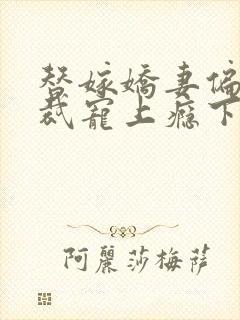 替嫁嬌妻偏
裁寵上癮下
阿麗莎梅薩